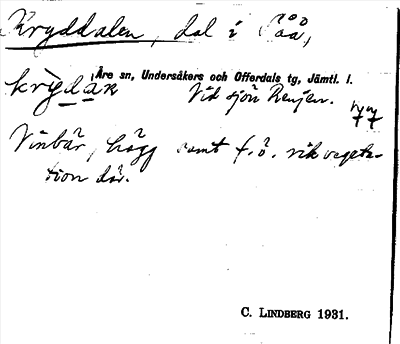 Kryddalen, dal i Råå,
Åre sn, Undersåkers och Offerdals tg, Jämtl. l.
krỳdạḷạn Vid sjön Rensjen.
Vinbär, hägg samt f. ö. rik vegeta-
tion där.
C. LINDBERG 1931.